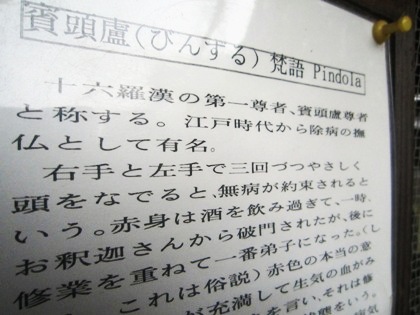 賓頭盧(びんずる) 梵語 Pindola
十六羅漢の第一尊者、賓頭盧尊者
と称する。江戸時代から除病の撫
仏として有名。
右手と左手で三回づつやさしく
頭をなでると、無病が約束されると
いう。赤身は酒を飲み過ぎて、一時、
お釈迦さんから破門されたが、後に
修業を重ねて一番弟子になった。(し
これは俗説)赤色の本当の意
が充満して生気の血がみ
を言い、それは修
をいう。
病気